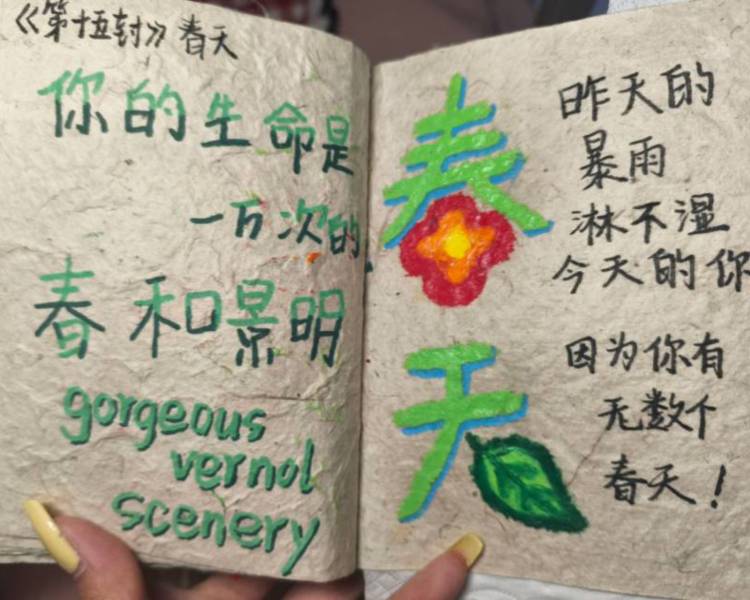 《第十五封》春天
你的生命是
一万次的
春和景明
gorgeous
vernal
scenery
春
天
昨天的
暴雨
淋不湿
今天的你
因为你有
无数个
春天！